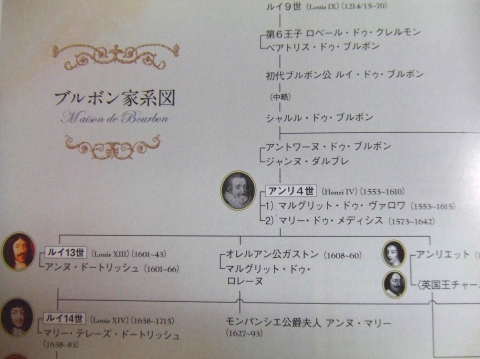 ルイ9世 (Louis IX) (1214/15~70)
第6王子 ロベール・ドゥ・クレルモン
ベアトリス・ドゥ・ブルボン
初代ブルボン公 ルイ・ドゥ・ブルボン
(中略)
シャルル・ドゥ・ブルボン
ブルボン家系図
Maison de Bourbon
アントワーヌ・ドゥ・ブルボン
ジャンヌ・ダルブレ
アンリ4世 (Henri IV) (1553~1610)
1) マルグリット・ドゥ・ヴァロワ (1553~1615)
2) マリー・ドゥ・メディシス (1573~1642)
ルイ13世 (Louis XIII) (1601~43)
アンヌ・ドートリッシュ (1601~66)
オルレアン公ガストン (1608~60)
マルグリット・ドゥ・
ロレーヌ
アンリエット
(英国王チャー
ルイ14世 (Louis XIV) (1638~1715)
マリー・テレーズ・ドートリッシュ
(1638~83)
モンパンシエ公爵夫人 アンヌ・マリー
(1627~93)